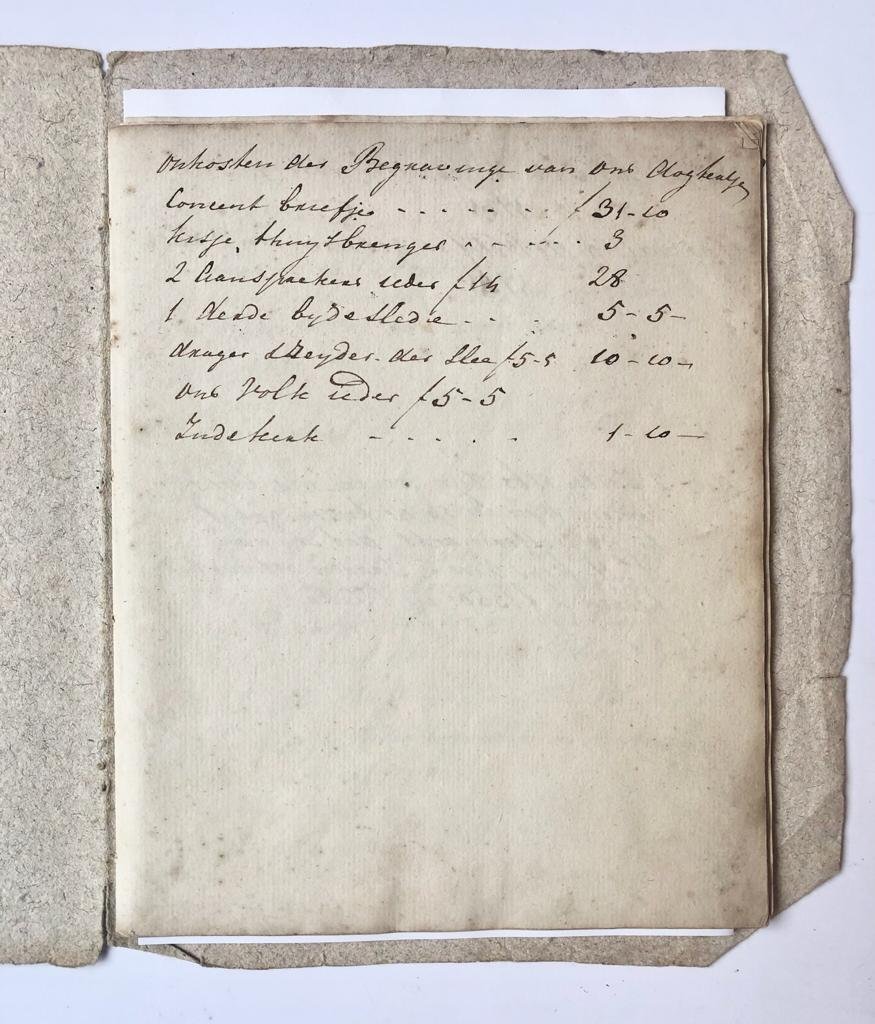 onkosten der Begravinge van ons dogtentje
Concent briefje - - - - - - - f 31-10
kisje thuysbrenger - - - - - 3
2 Aansprekers ieder f 14 28
1 derde by de slede - - - 5-5-
drager & Leyder der Slee f 5-5 10-10-
ons Volk ieder f 5-5
In de kerk - - - - 1-10-